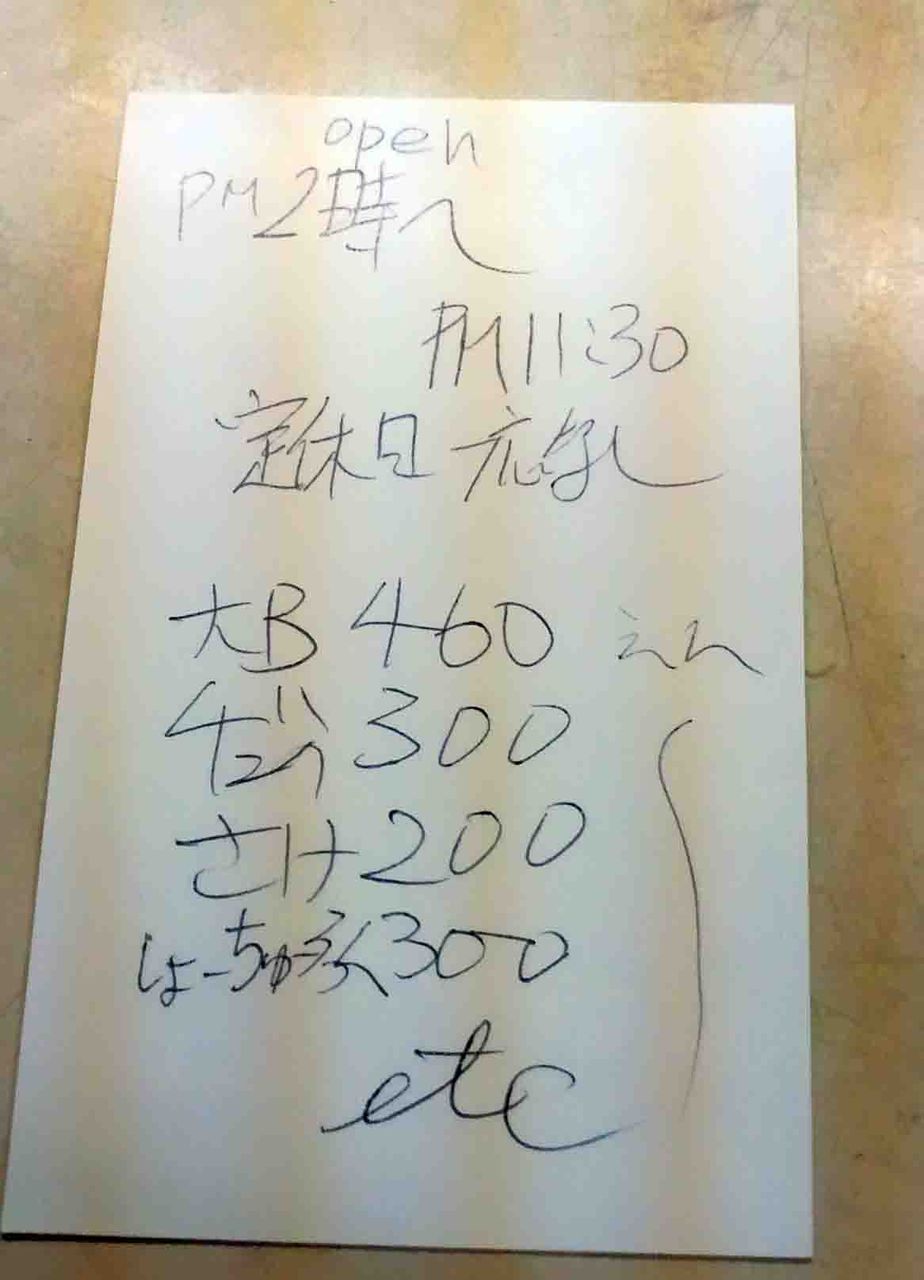 open
PM2時〜
PM11:30
定休日 なし
大B 460 えん
300
さけ200
しょーちゅう 300
etc